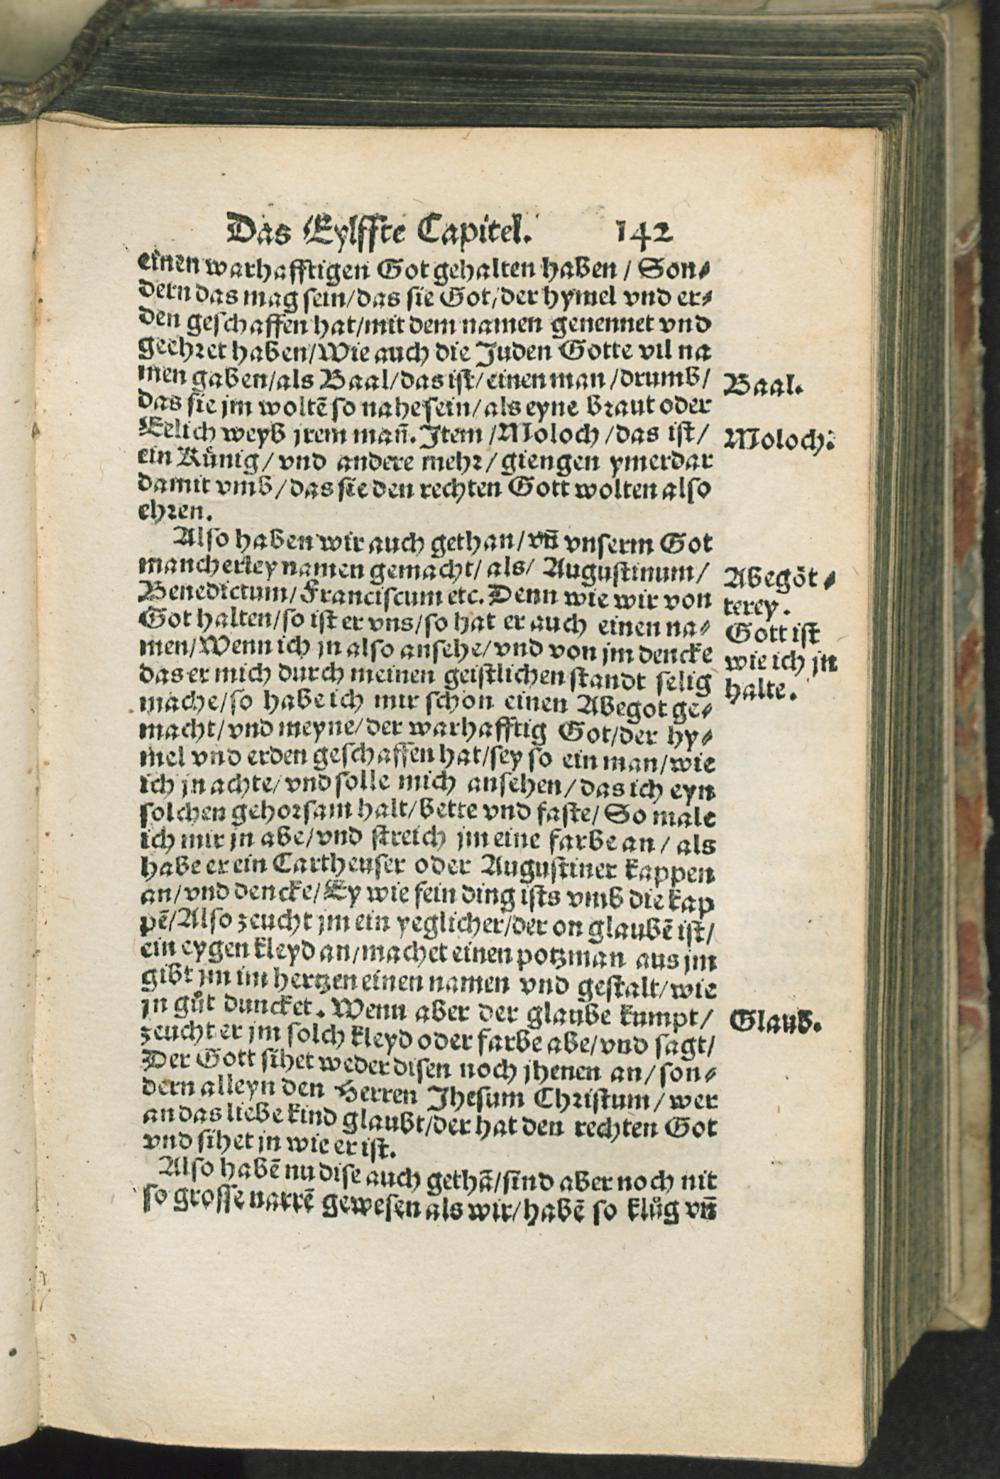 Das Eylffte Capitel. 142
einen warhafftigen Got gehalten haben / Son⸗
dern das mag sein/das sie Got/der hymel vnd er⸗
den geschaffen hat/mit dem namen genennet vnd
geehret haben/Wie auch die Juden Gotte vil na
men gaben/als Baal/das ist/einen man/drumb/
Baal.
das sie jm woltē so nahe sein/als eyne braut oder
Eelich weyb jrem man̄. Item/Moloch/das ist/
Moloch.
ein Künig/vnd andere mehr/giengen ymerdar
damit vmb/das sie den rechten Gott wolten also
ehren.
Also haben wir auch gethan/vn̄ vnserm Got
mancherley namen gemacht/als/ Augustinum/
Abegöt⸗
Benedictum/Franciscum etc. Denn wie wir von
terey.
Got halten/so ist er vns/so hat er auch einen na⸗
Gott ist
men/Wenn ich jn also ansehe/vnd von jm dencke
wie ich jn
das er mich durch meinen geistlichen standt selig
halte.
mache/so habe ich mir schon einen Abegot ge⸗
macht/vnd meyne/der warhafftig Got/der hy⸗
mel vnd erden geschaffen hat/sey so ein man/wie
ich jn achte/vnd solle mich ansehen/das ich eyn
solchen gehorsam halt/bette vnd faste/So male
ich mir jn abe/vnd streich jm eine farbe an/als
habe er ein Cartheuser oder Augustiner kappen
an/vnd dencke/Ey wie fein ding ists vmb die kap
pē/Also zeucht jm ein yeglicher/der on glaubē ist/
ein eygen kleyd an/machet einen potzman aus jm
gibt jm im hertzen einen namen vnd gestalt/wie
jn gůt duncket. Wenn aber der glaube kumpt/
Glaub.
zeucht er jm solch kleyd oder farbe abe/vnd sagt/
Der Gott sihet weder disen noch jhenen an/son⸗
dern alleyn den Herren Jhesum Christum/wer
an das liebe kind glaubt/der hat den rechten Got
vnd sihet jn wie er ist.
Also habē nu dise auch gethā/sind aber noch nit
so grosse narrē gewesen als wir/habē so klůg vn̄